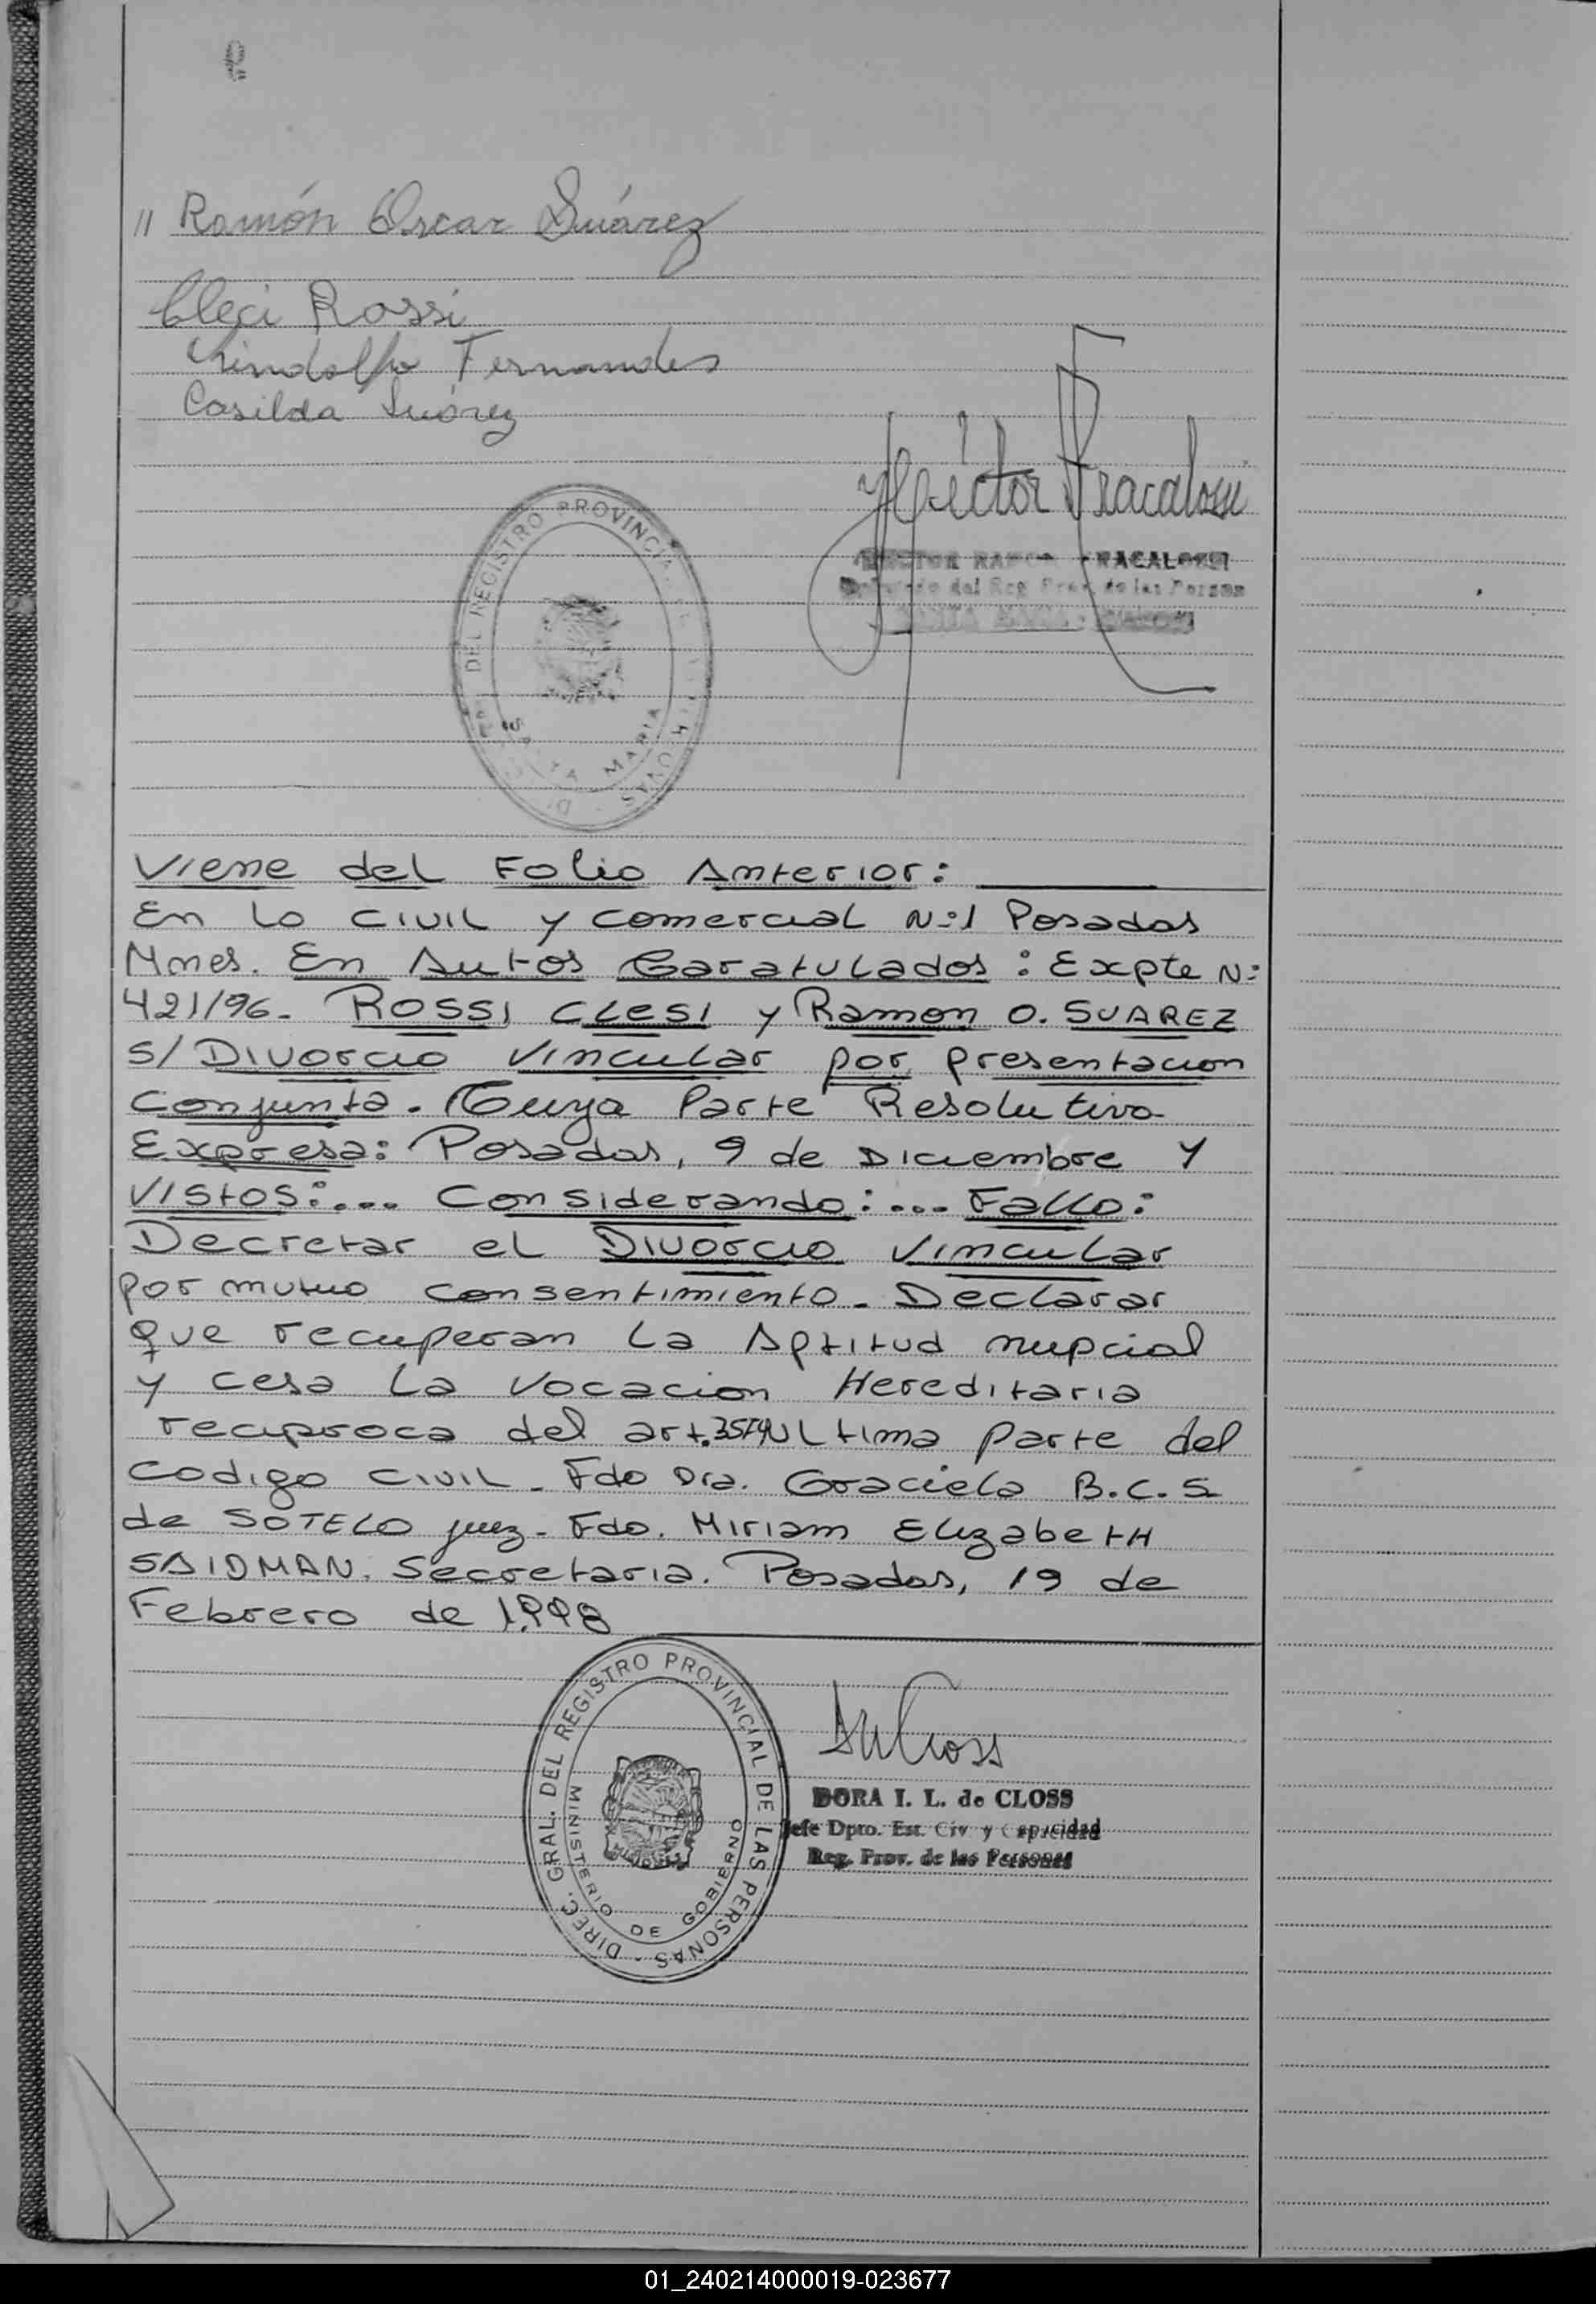 " Ramón Oscar Suárez
Cleci Rossi
Lindolfo Fernandes
Casilda Suárez
Héctor Fracalossi
HECTOR RAMON FRACALOSSI
del Reg Prov. de las Person
SANTA MARIA
DEL REGISTRO PROVINCIAL
SANTA MARIA
Viene del Folio Anterior:
En lo civil y comercial N:1 Posadas
Mnes. En Autos Caratulados: Expte N:
421/96. ROSSI CLESI y Ramon O. SUAREZ
S/Divorcio Vincular por presentacion
Conjunta. Cuya Parte Resolutiva
Expresa: Posadas, 9 de Diciembre Y
Vistos:... Considerando:... Fallo:
Decretar el Divorcio Vincular
por mutuo consentimiento. Declarar
que recuperan la Aptitud nupcial
y cesa la vocacion Hereditaria
reciproca del art. 3574 Ultima parte del
codigo civil. Fdo Dra. Graciela B.C.S.
de SOTELO juez. Fdo. Miriam ElizabetH
SAIDMAN. Secretaria. Posadas, 19 de
Febrero de 1.998
DIREC. GRAL. DEL REGISTRO PROVINCIAL DE LAS PERSONAS
MINISTERIO DE GOBIERNO
DORA I. L. de CLOSS
Jefe Dpto. Est. Civ y Capacidad
Reg. Prov. de las Personas
01_240214000019-023677